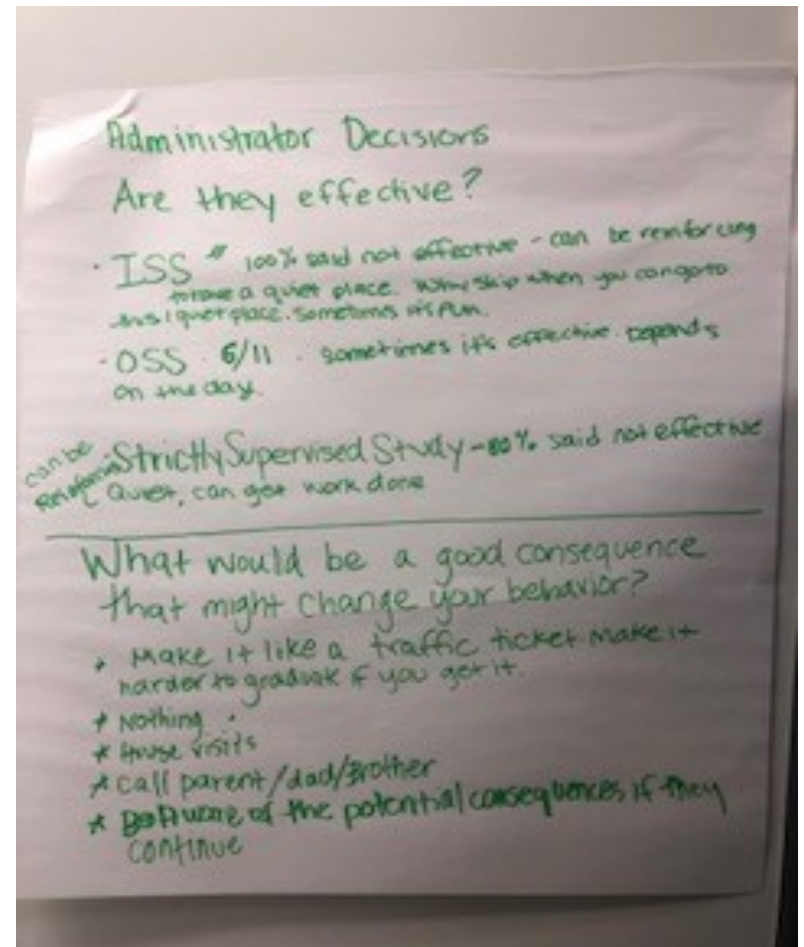 Administrator Decisions
Are they effective?
· ISS 100% said not effective - can be reinforcing
a quiet place. Why skip when you can go to
this quiet place. Sometimes it's fun.
· OSS 6/11 · sometimes it's effective. Depends
on the day.
can be
· Strictly Supervised Study - 80% said not effective
Quiet, can get work done
What would be a good consequence
that might change your behavior?
* Make it like a traffic ticket make it
harder to graduate if you get it.
* Nothing
* House visits
* Call parent/dad/Brother
* of the potential consequences if they
continue